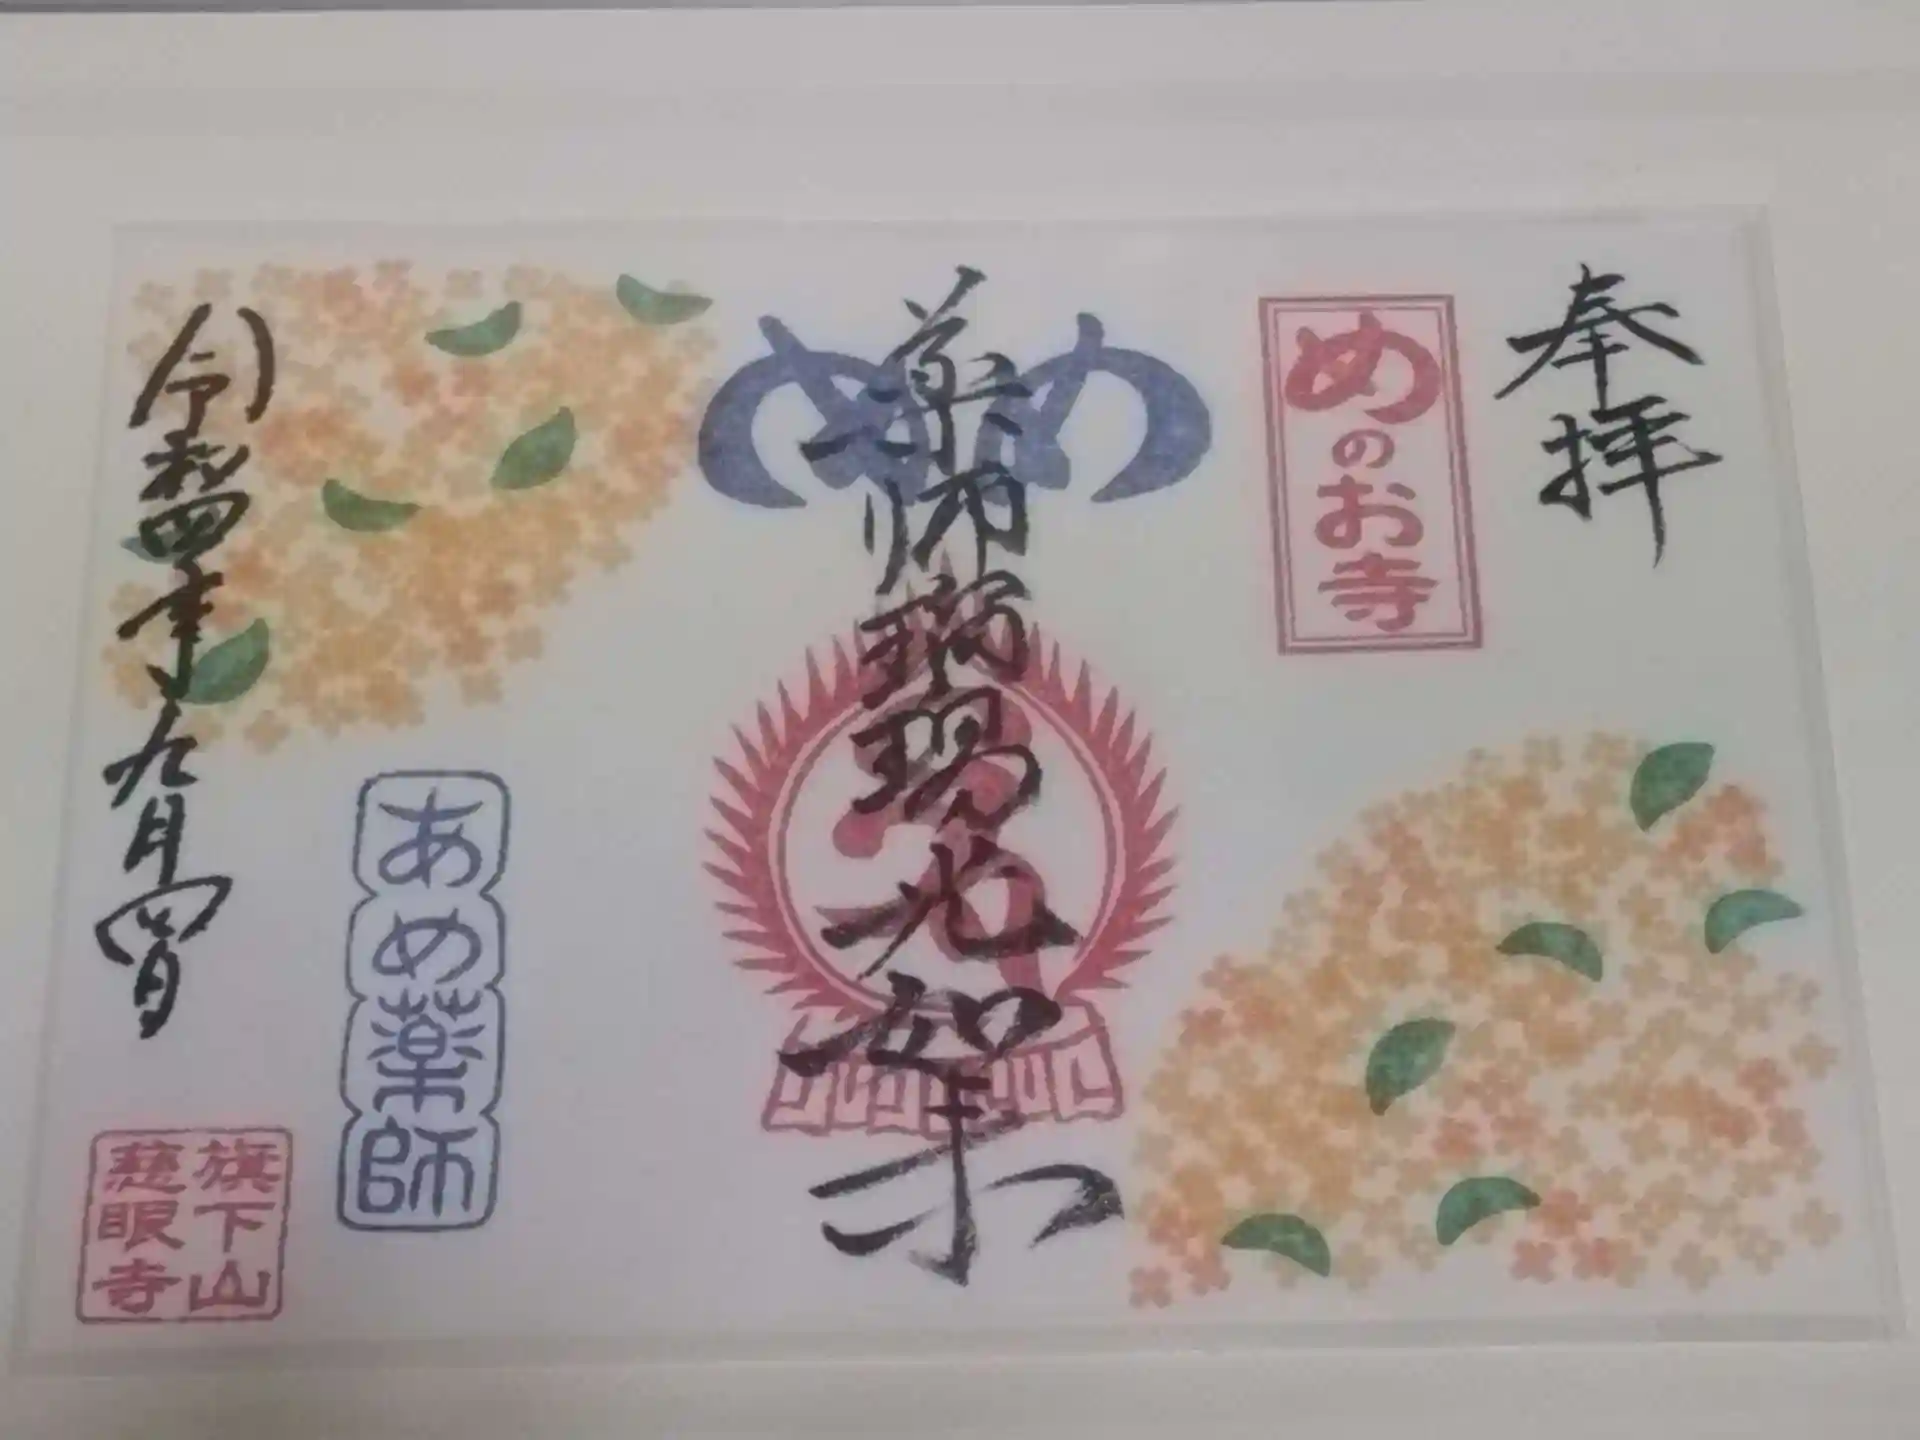 奉拝
めのお寺
め め
薬師瑠璃光如来
あめ薬師
令和四年九月四日
旗下山
慈眼寺